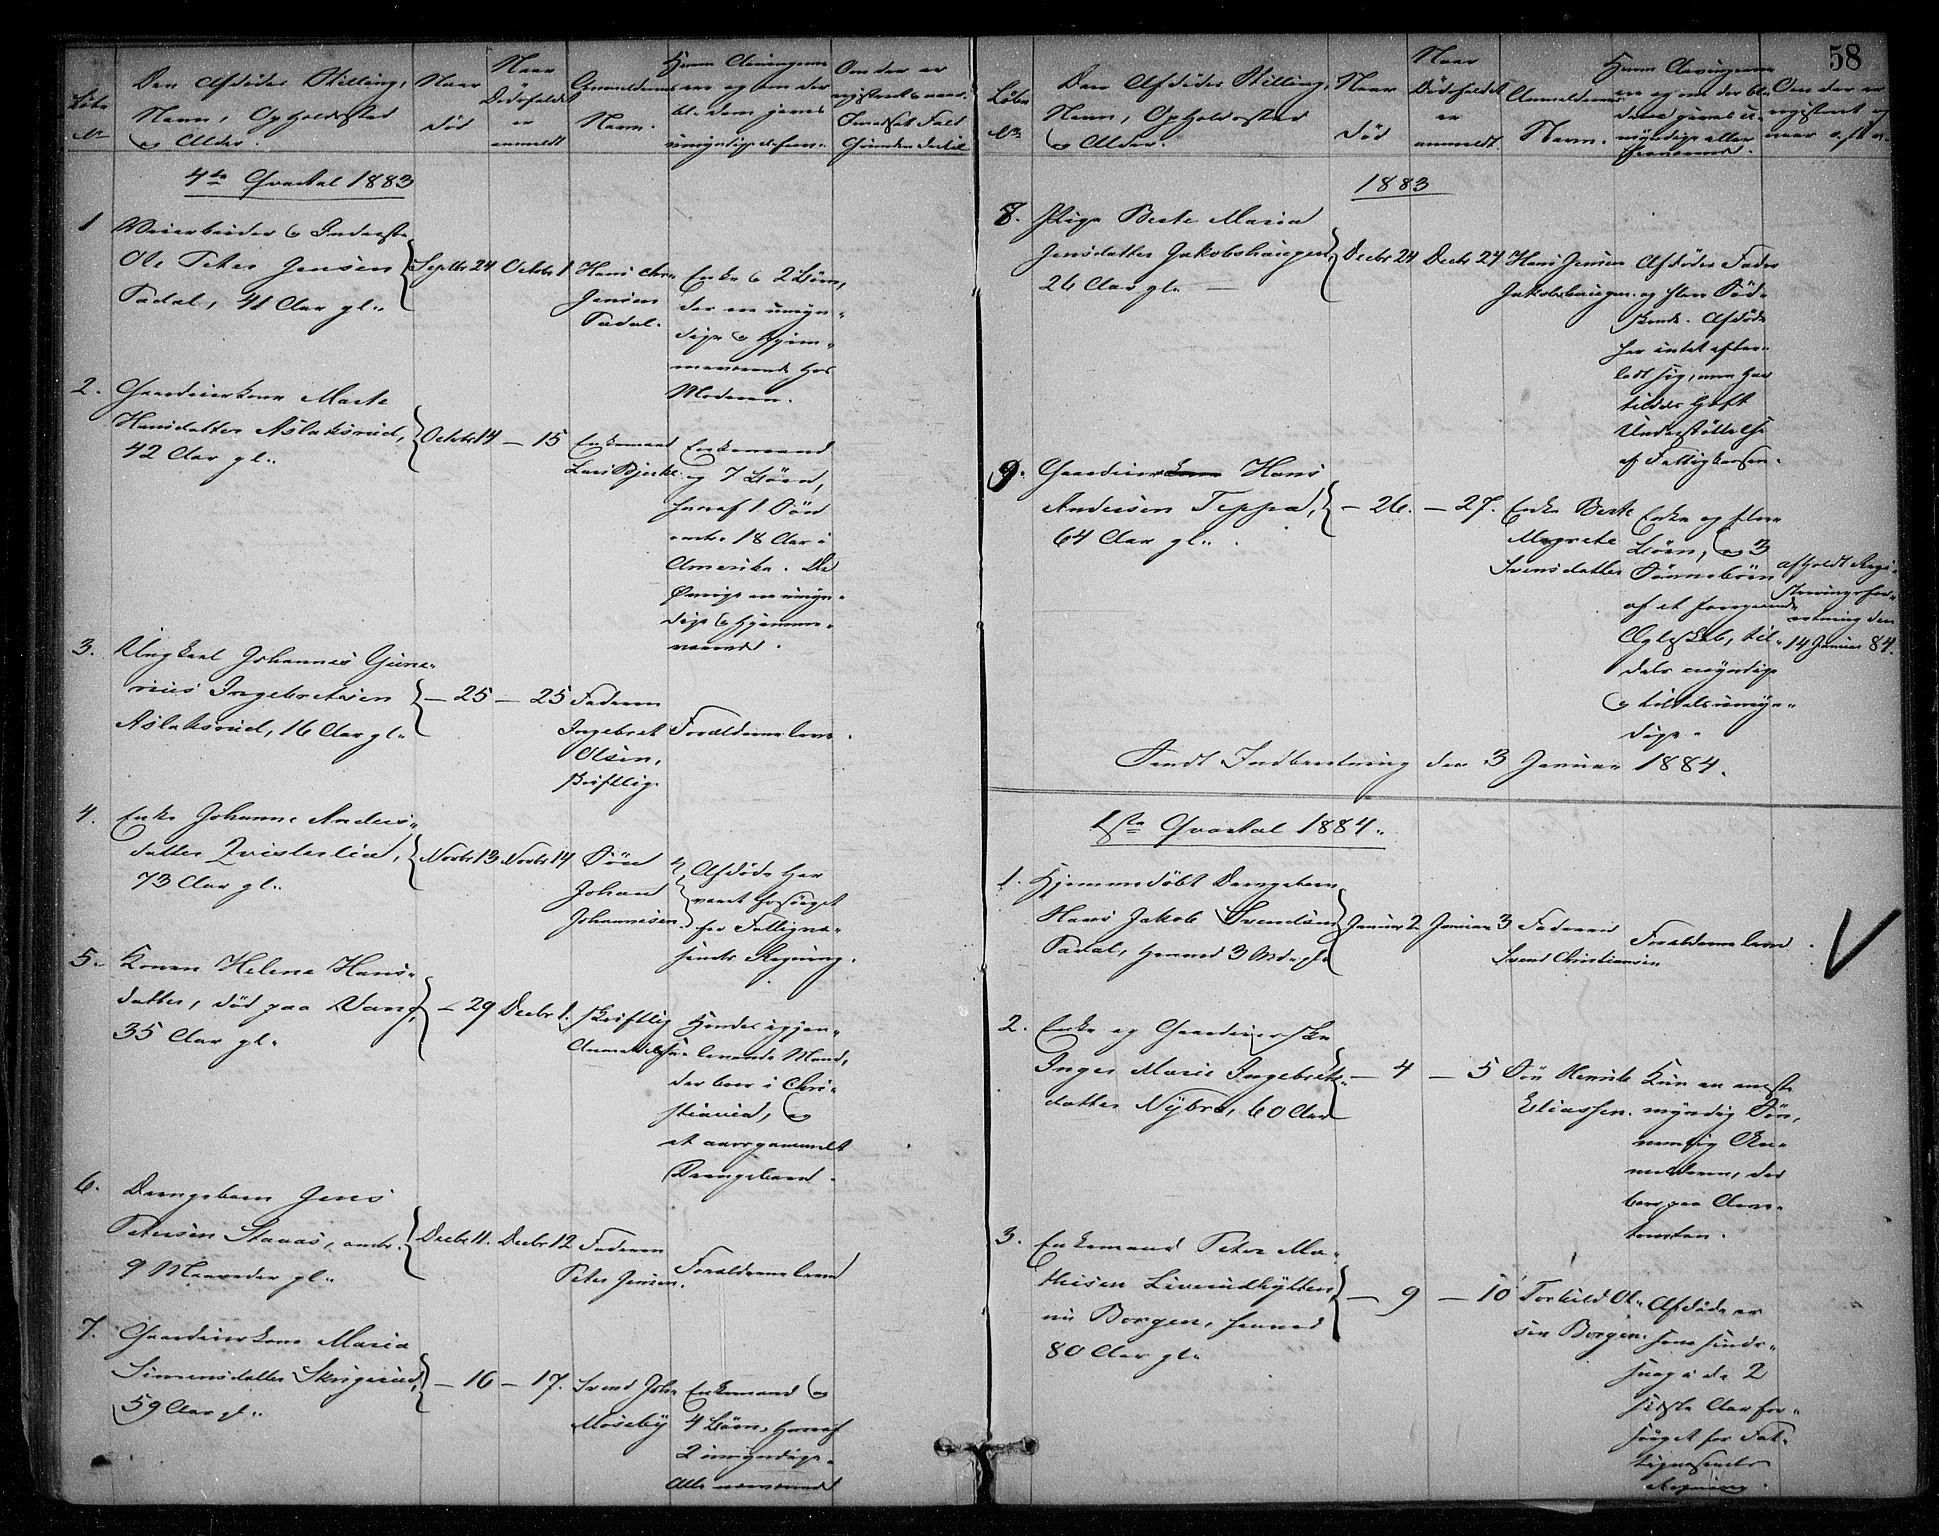 58
Løbe
No
Den Afdødes Stilling,
Navn, Opholdssted
og Alder.
Naar
død
Naar
Dødsfaldet
er
anmeldt
Anmelderens
Navn.
Hvem Arvingerne
ere og om der
bl. dem gives
umyndige el. frav.
Om der er
registreret og naar.
I modsat Fald
Grunden dertil
4de Qvartal 1883
1
Veiarbeider & Inderst
Ole Peter Jensen
Tadal, 41 Aar gl.
Septbr 24
Octobr 1
Hans Chr.
Jensen
Tadal.
Enke & 2 Børn,
der ere umyn-
dige & hjem-
meværende hos
Moderen.
2.
Gaardeierkone Marte
Hansdatter Aslaksrud,
42 Aar gl.
Octobr 14
— 15
Enkemand
Lars Bjerke.
Enkemand
og 7 Børn,
hvoraf 1 Søn
omtr. 18 Aar i
Amerika. De
Øvrige ere umyn-
dige & hjemme-
værende.
3.
Ungkarl Johannes Guna-
rius Ingebretsen
Aslaksrud, 16 Aar gl.
— 25
— 25
Faderen
Ingebret
Olsen,
skriftlig.
Forældrene leve.
4.
Enke Johanne Anders-
datter Qvisterlia,
73 Aar gl.
Novbr 13
Novbr 14
Søn
Johan
Johannesen.
Afdøde har
været forsørget
for Fattigvæ-
senets Regning.
5.
Konen Helene Hans-
datter, død paa Vang,
35 Aar gl.
— 29
Decbr 1.
Skriftlig
Anmeldelse
Hendes igjen-
levende Mand,
der boer i Chri-
stiania, og
et aarsgammelt
Drengebarn.
6.
Drengebarn Jens
Petersen Staaas, omtr.
9 Maaneder gl.
Decbr 11.
Decbr 12
Faderen
Peter Jensen.
Forældrene leve
7.
Gaardeierkone Maria
Simensdatter Skrigerud,
59 Aar gl.
— 16
— 17.
Svend Joh.
Moseby
Enkemand &
4 Børn, hvoraf
2 umyndige.
Alle nærværende
Løbe
No
Den Afdødes Stilling,
Navn, Opholdssted
og Alder.
Naar
død
Naar
Dødsfaldet
er
anmeldt.
Anmelderens
Navn.
Hvem Arvingerne
ere og om der bl.
dem gives u-
myndige eller
fraværende.
Om der er
registreret og
naar o.s.v.
1883
8.
Pige Berte Maria
Jensdatter Jakobshaugen
26 Aar gl. —
Decbr 24
Decbr 24
Hans Jensen
Jakobshaugen.
Afdødes Fader
og flere Sød-
skende. Afdøde
har intet efter-
ladt sig, men har
tildels havt
Understøttelse
af Fattigkassen.
9.
Gaardeierkone Hans
Andersen Teppa,
64 Aar gl.
— 26.
— 27.
Enke Berte
Magrete
Svensdatter
Enke og flere
Børn, og 3
Sønnebørn
af et foregaaende
Ægteskab, til-
dels myndige
og tildels umyn-
dige.
afholdt Regi-
streringsfor-
retning den
14 Januar 84.
Sendt Indberetning den 3 Januar 1884.
1ste Qvartal 1884.
1.
Hjemmedøbt Drengebarn
Hans Jakob Svendsen
Tadal, henved 3 Md. gl.
Januar 2
Januar 3
Faderen
Svend Christiansen
Forældrene leve.
2.
Enke og Gaardeierske
Inger Marie Ingebret-
datter Nybro, 60 Aar
— 4
— 5
Søn Henrik
Eliassen.
Kun en eneste
myndig Søn,
nemlig An-
melderen, der
boer paa Aam-
tomten.
3.
Enkemand Peter Ma-
thisen Liverudhytten,
nu Borgen, henved
80 Aar gl.
— 9
— 10
Torkild Ol-
sen Borgen.
Afdøde er
sidste Aar for-
sørget for Fat-
tigvæsenets
Regning.